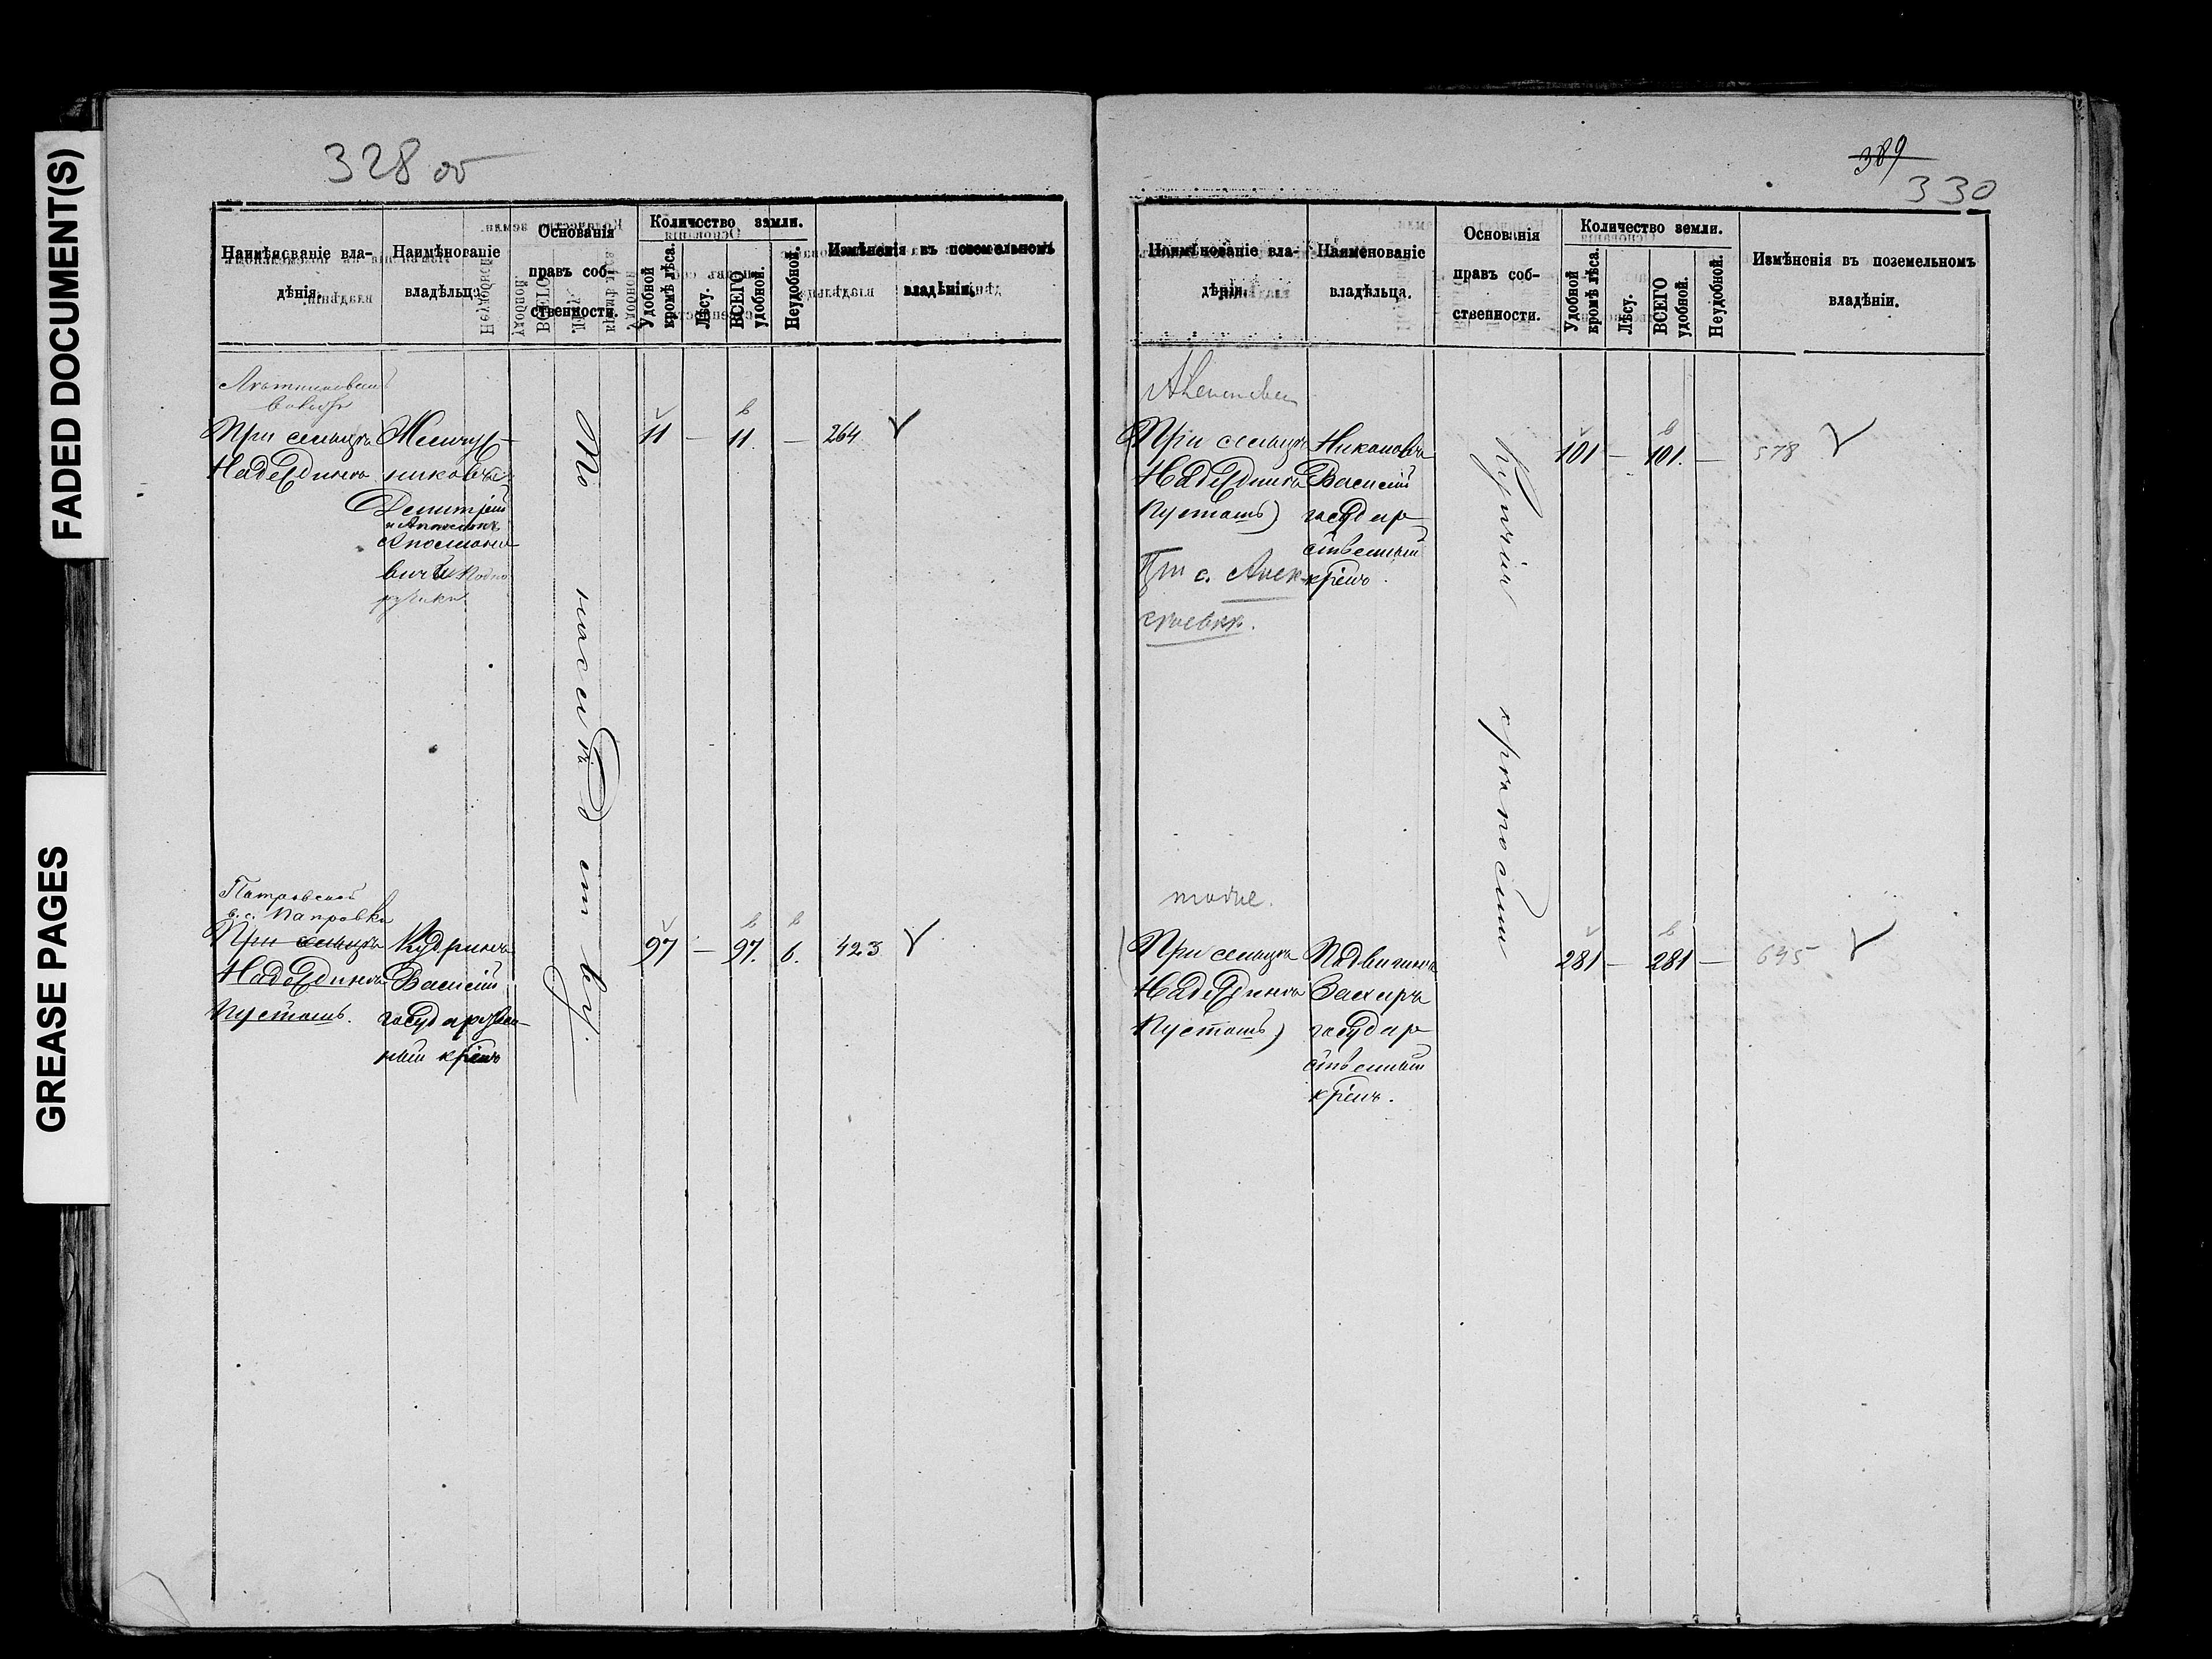 FADED DOCUMENT(S)
GREASE PAGES
328 об
Наимѣнованіе вла-
дѣнія.
Наимѣнованіе
владѣльца.
Основанія
правъ соб-
ственности.
Количество земли.
Удобной
кромѣ лѣса.
Лѣсу.
ВСЕГО
удобной.
Неудобной.
Измѣненія въ поземельномъ
владѣніи.
При сельцѣ
Надеждинѣ
Жемчуж-
никовъ
Дмитрій
Аполлоно
вичъ
По наслѣдству.
11 — 11 — 264
Петровской
в. с. Петровка
При сельцѣ
Надеждинѣ
Пустошь.
Кудринъ
Василій
государствен-
ный крѣнъ
97 — 97. 6. 423
389
330
Наимѣнованіе вла-
дѣнія.
Наименованіе
владѣльца.
Основанія
правъ соб-
ственности.
Количество земли.
Удобной
кромѣ лѣса.
Лѣсу.
ВСЕГО
удобной.
Неудобной.
Измѣненія въ поземельномъ
владѣніи.
При сельцѣ
Надеждинѣ
Пустошь)
При с. Алек-
сѣевкѣ.
Никоновъ
Василій
государ-
ственный
крѣнъ.
Купчія крѣпости
101 — 101. — 578
тоже.
При сельцѣ
Надеждинѣ
Пустошь)
Подвигинъ
Захаръ
государ-
ственный
крѣнъ.
281 — 281 — 695